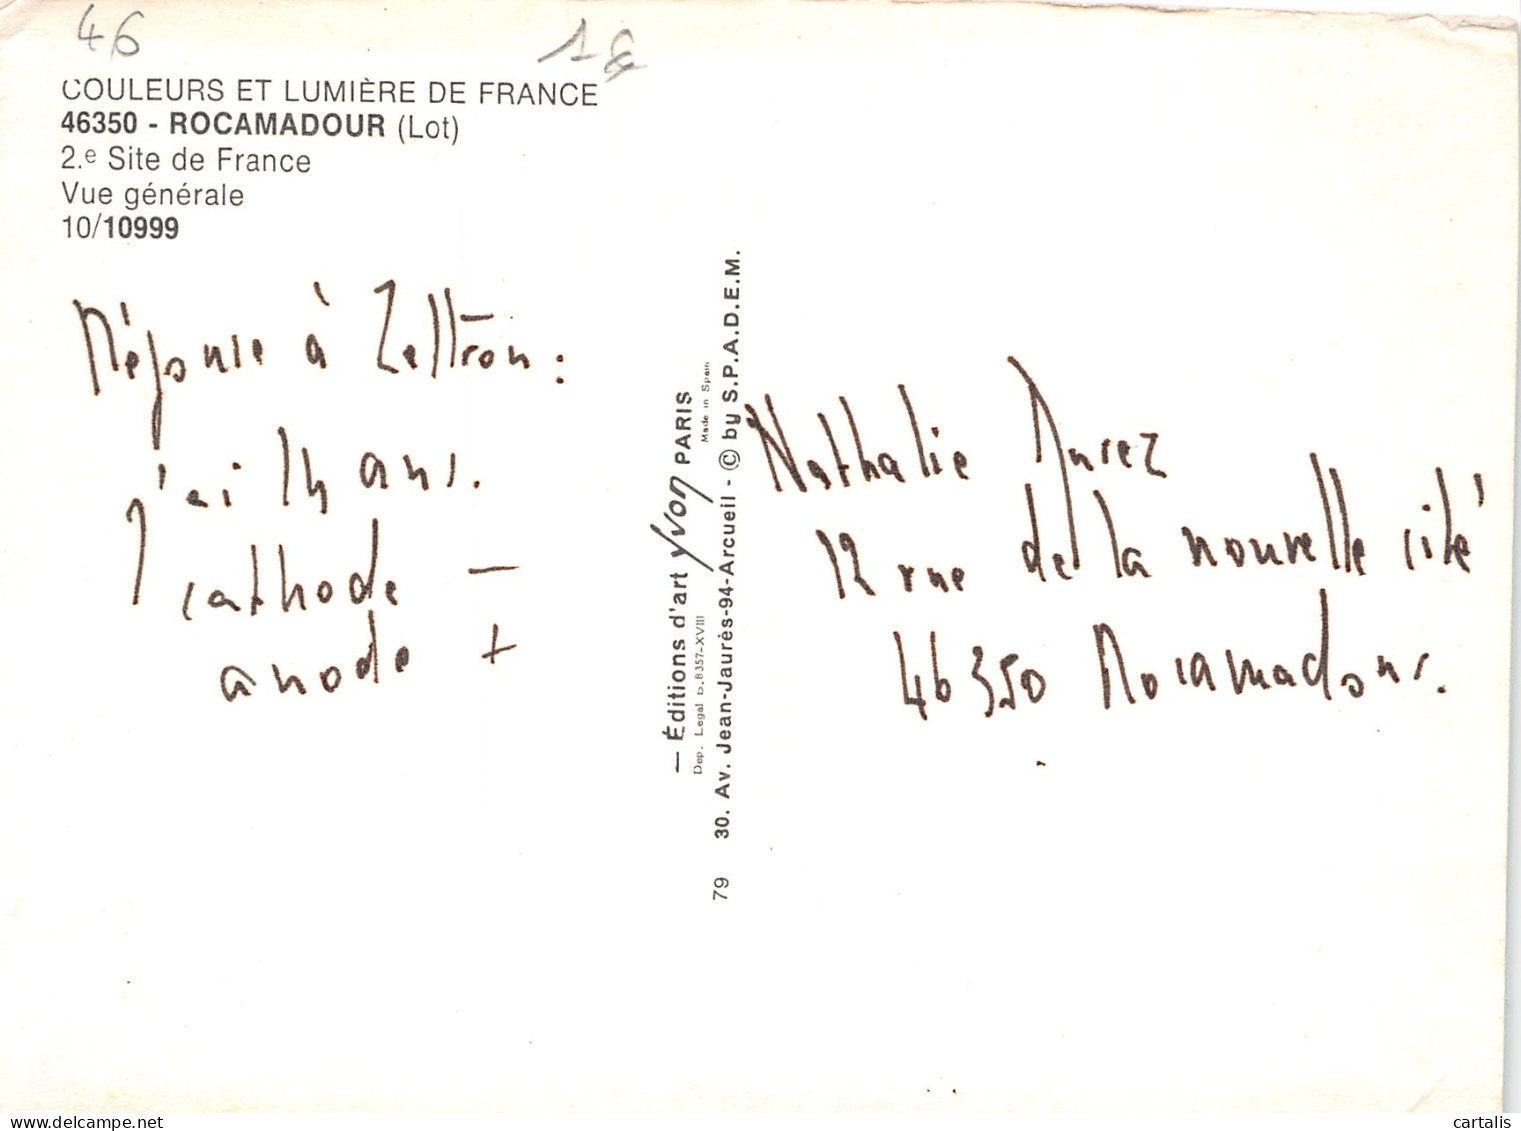 46
COULEURS ET LUMIÈRE DE FRANCE
46350 - ROCAMADOUR (Lot)
2.e Site de France
Vue générale
10/10999
Réponse à Zeltron :
J'ai 14 ans.
cathode -
anode +
— Éditions d'art Yvon PARIS
Dep. Legal B.8357-XVIII
Made in Spain
79 30. Av. Jean-Jaurès-94-Arcueil - © by S.P.A.D.E.M.
Nathalie
12 rue de la nouvelle cité
46350 Rocamadour.
cartalis